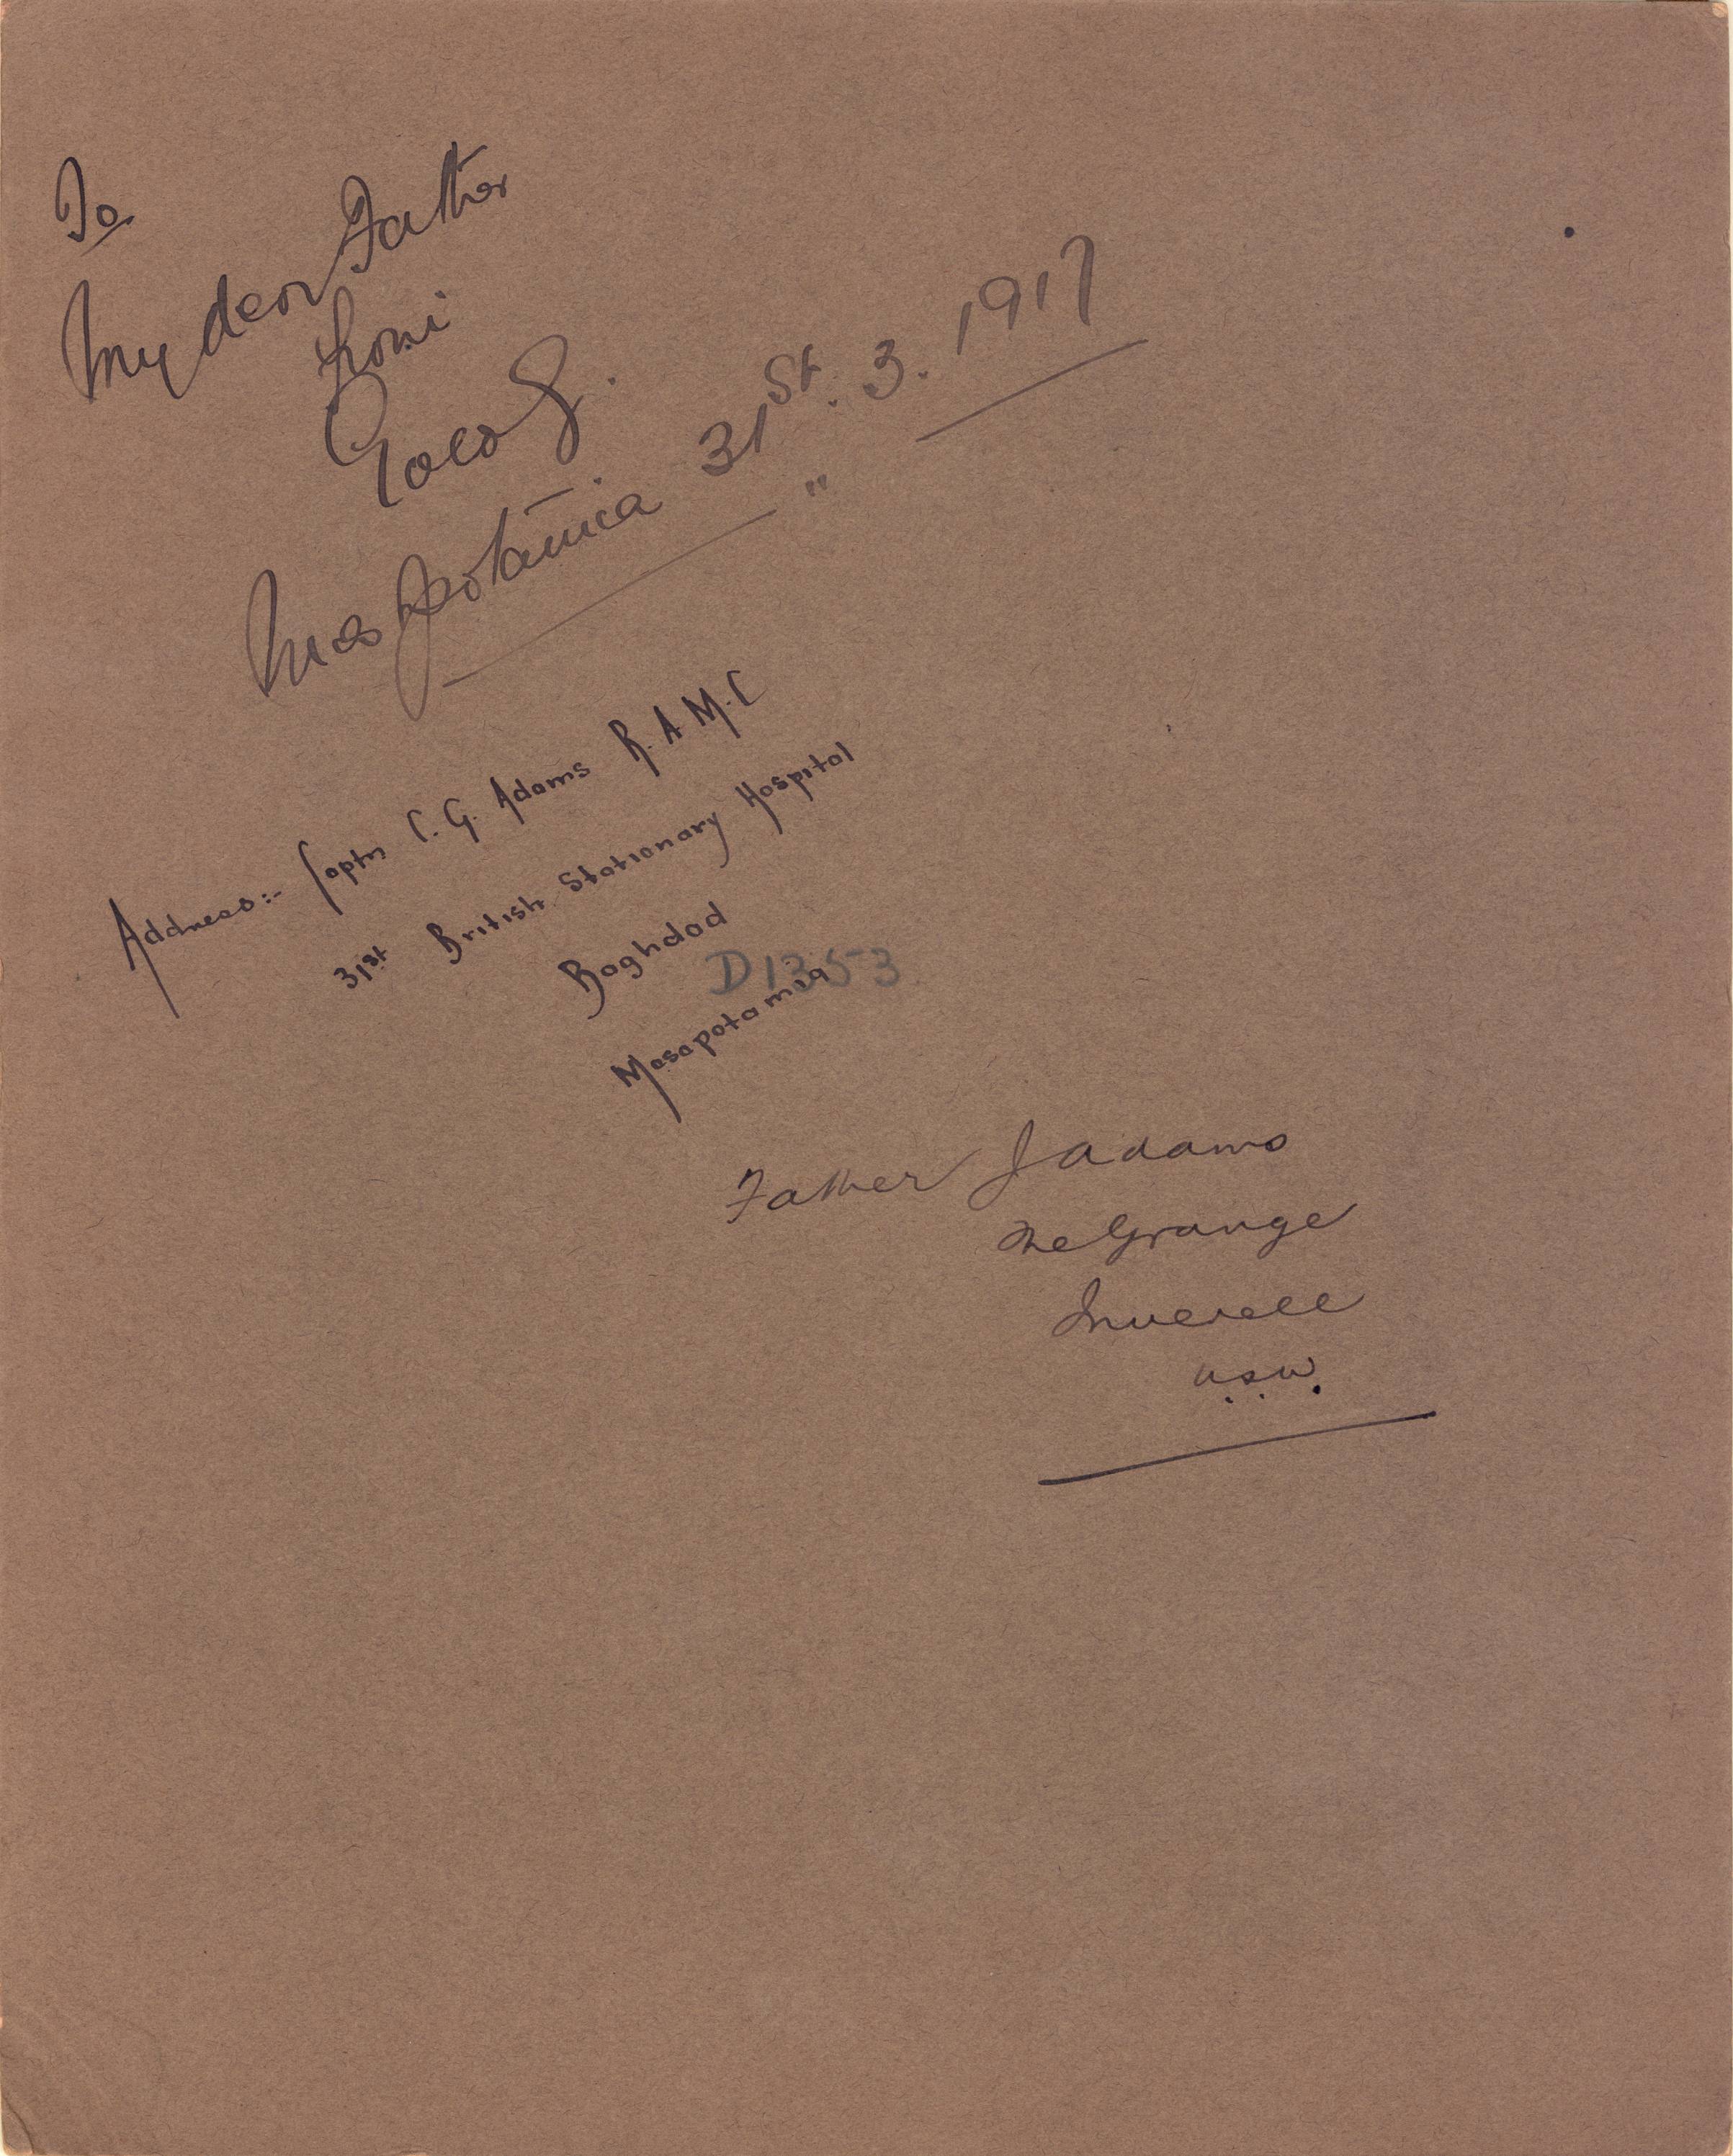 To
My dear Father
from
Mesopotamia 31st. 3. 1917
"
Address:- Captn C. G. Adams R.A.M.C
31st British Stationary Hospital
Baghdad
D1353
Mesapotamia
Father J Adams
The Grange
Inverell
N.S.W.